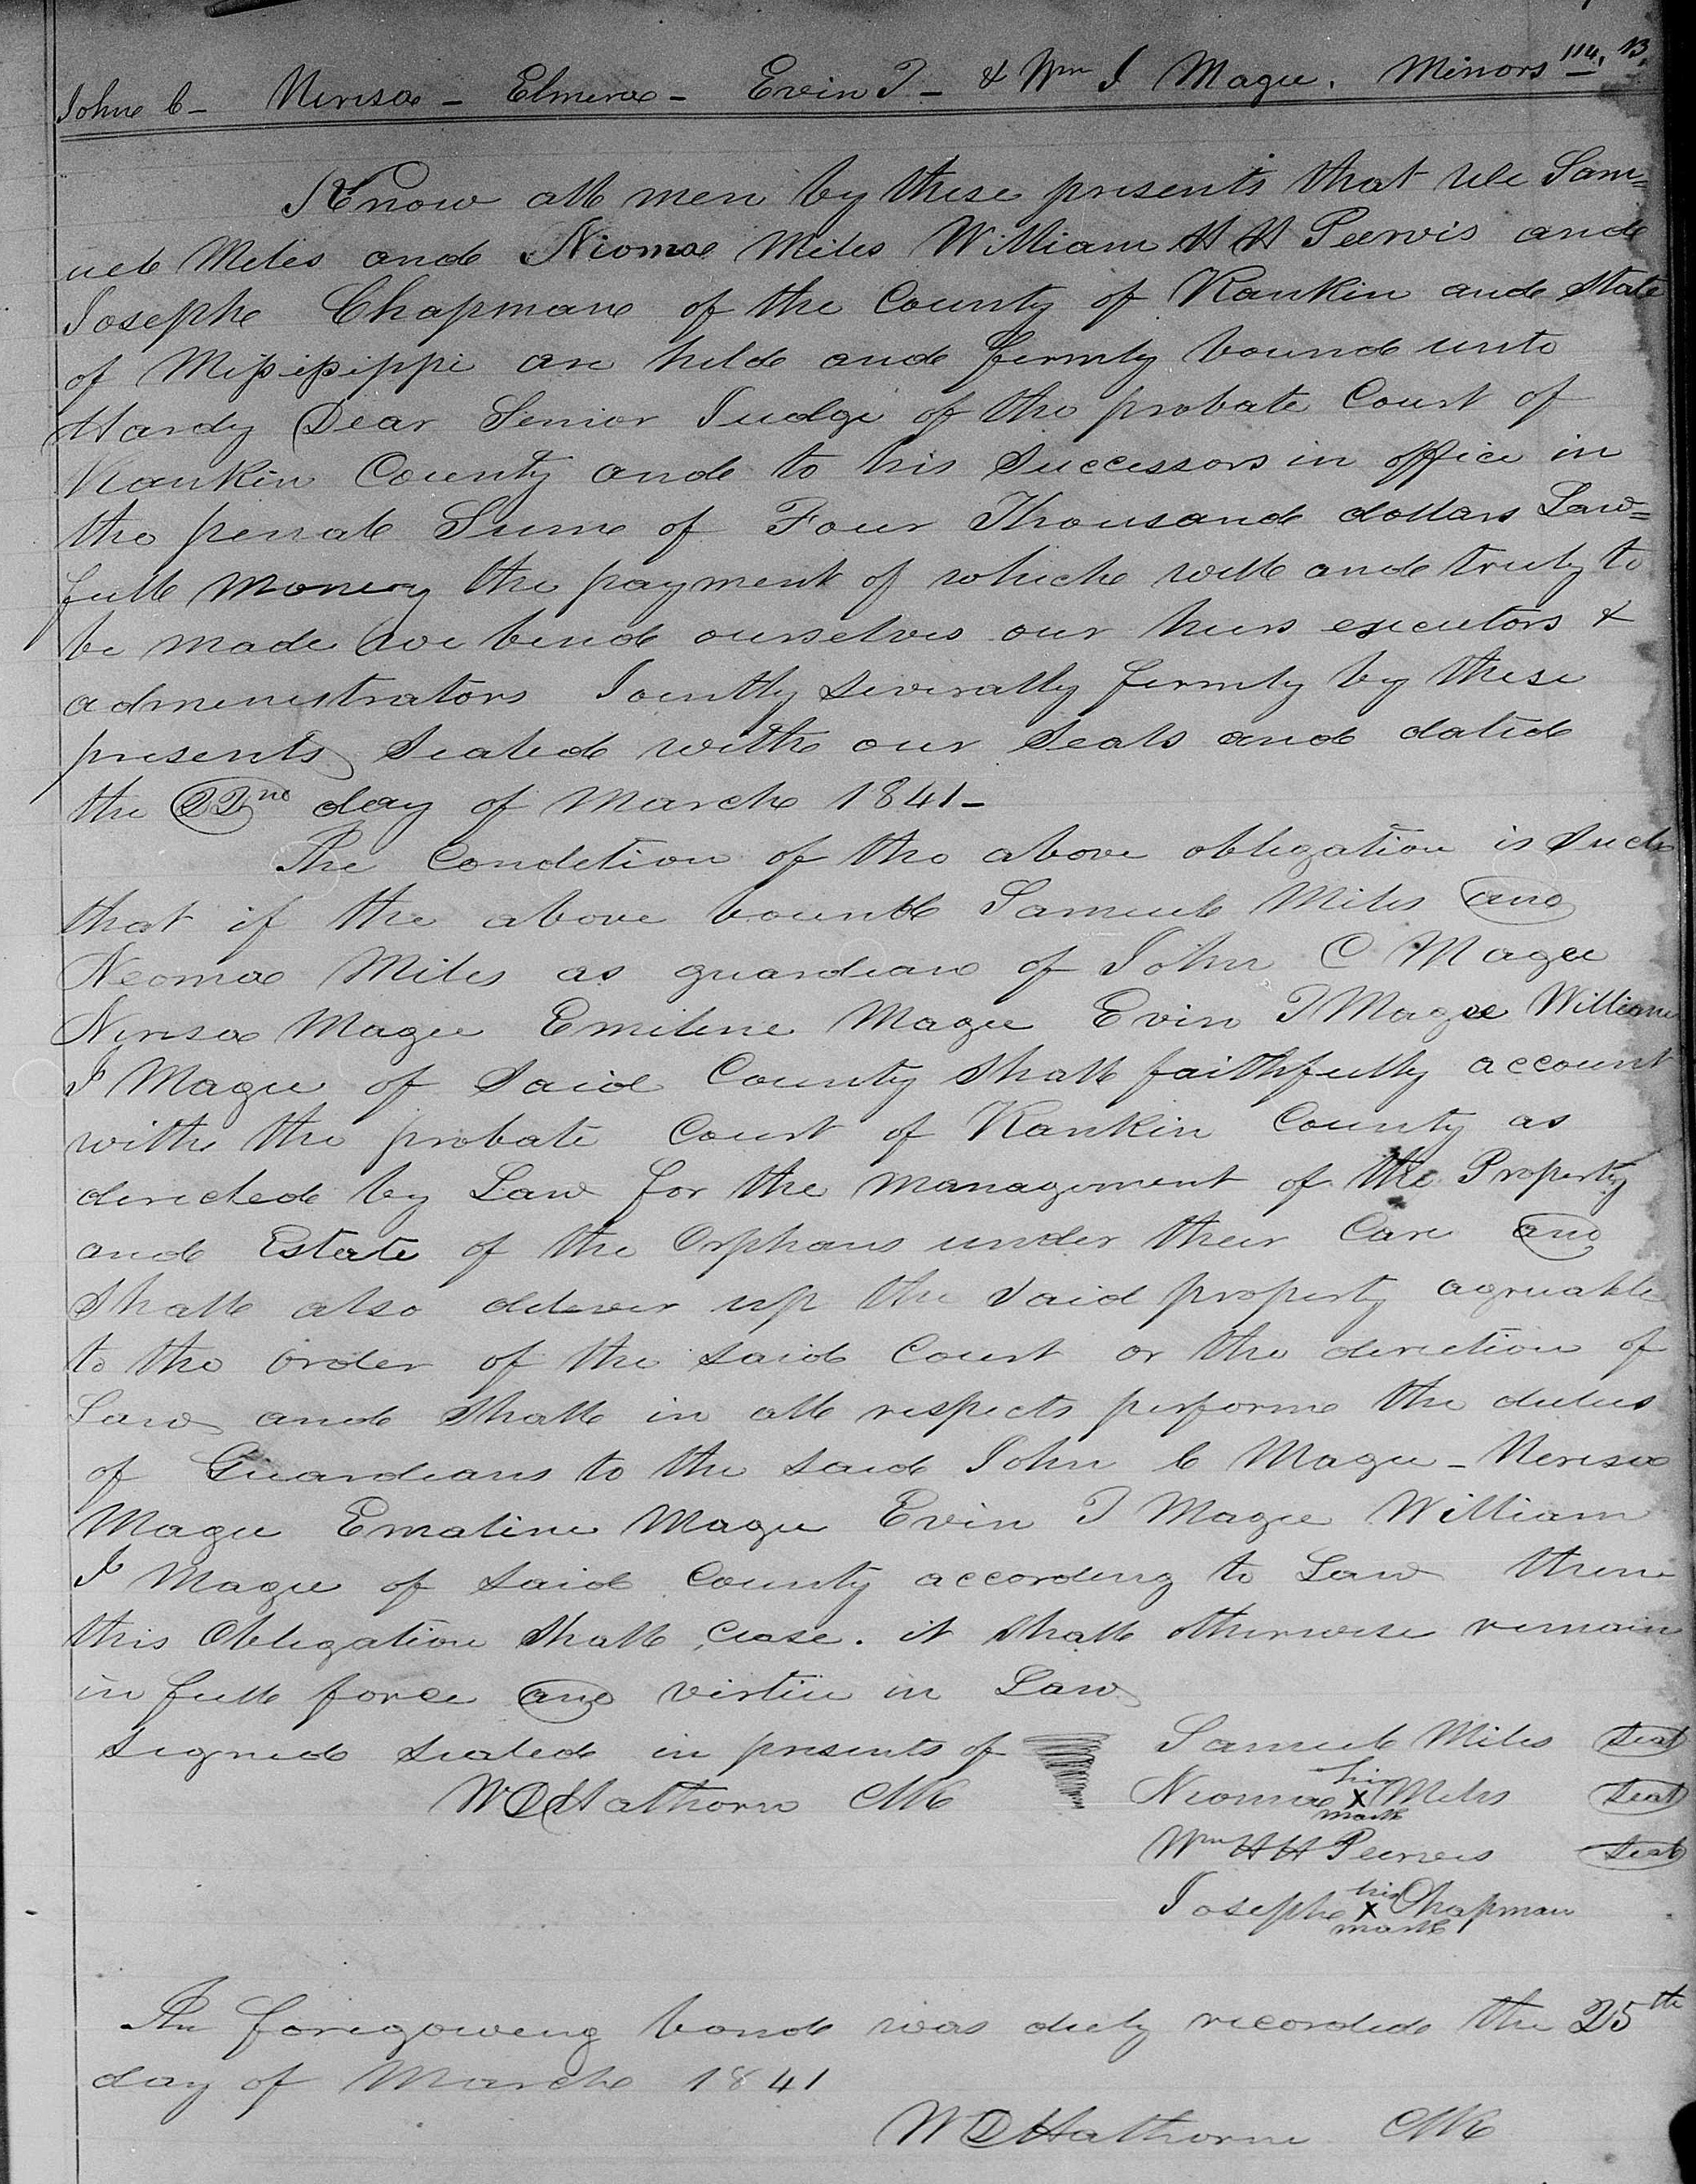 John C - Nerisa - Elmira - Evin T - & Wm J Magee. Minors 114, B,
Know all men by these presents that We Sam=
uel Miles and Niomae Miles William H H Peervis and
Joseph Chapman of the County of Rankin and State
of Mississippi are held and firmly bound unto
Hardy Dear Senior Judge of the probate Court of
Rankin County and to his Successors in office in
the penal Sum of Four Thousand dollars Law=
full Money the payment of which well and truly to
be made we bind ourselves our heirs executors &
administrators Jointly Severally firmly by these
presents Sealed with our Seals and dated
the 22nd day of March 1841 -
The Condition of the above obligation is Such
that if the above bound Samuel Miles and
Neomae Miles as guardian of John C Magee
Nerisa Magee Emiline Magee Evin T Magee William
J Magee of Said County Shall faithfully account
with the probate Court of Rankin County as
directed by Law for the management of the Property
and Estate of the Orphans under their Care and
Shall also deliver up the Said property agreable
to the order of the Said Court or the direction of
Law and Shall in all respects perform the duties
of Guardians to the Said John C Magee - Nerisa
Magee Emaline Magee Evin T Magee William
J Magee of Said County according to Law then
this Obligation Shall Cease. it Shall otherwise remain
in full force and virtue in Law
Signed Sealed in presents of Samuel Miles Seal
W D Hathorn Clk Niomae his X mark Miles Seal
Wm H H Peerveis Seal
Joseph his X mark Chapman
The foregoweing bond was duly recorded the 25th
day of March 1841
W D Hathorn Clk